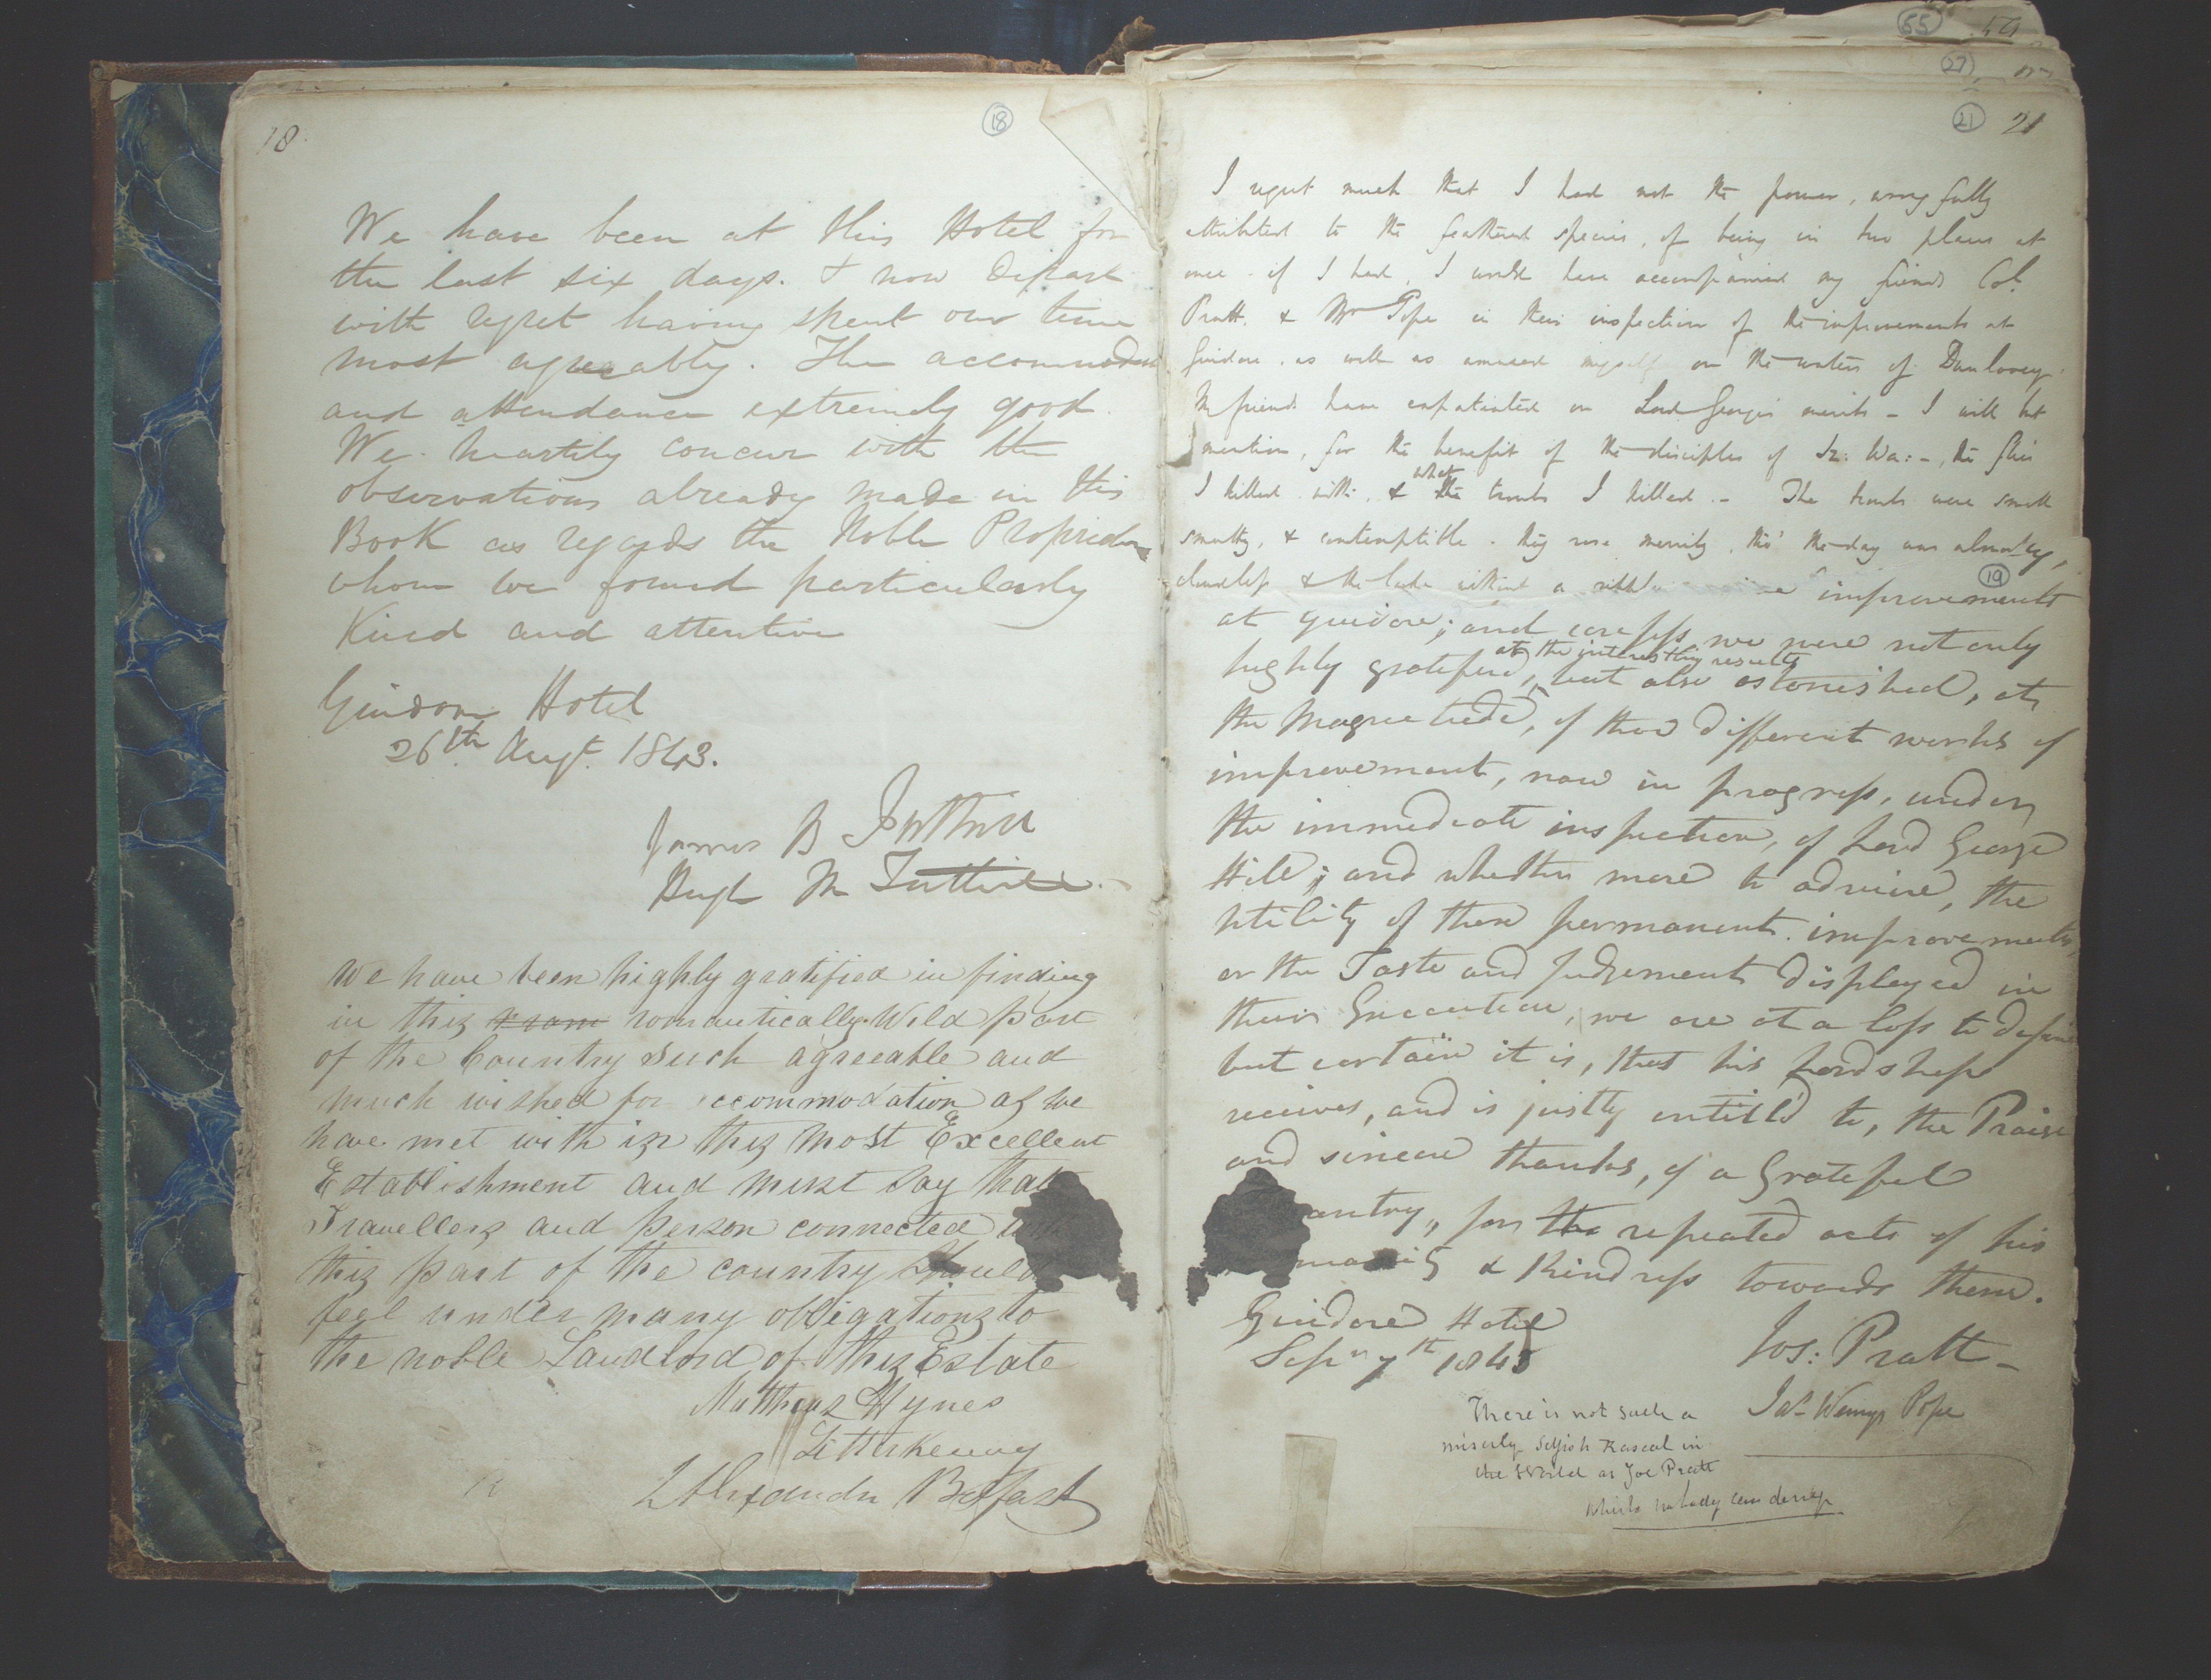 18
18
We have been at this Hotel for
the last six days. & now depart
with regret having spent our time
most agreeably. The accommodn
and attendance extremely good.
We heartily concur with the
observations already made in this
Book as regards the Noble Proprietor
whom we found particularly
Kind and attentive
Guidore Hotel
26th Augt. 1843.
James B
Hugh M
We have been highly gratified in finding
in this romantically Wild part
of the Country such agreeable and
much wished for accommodation as we
have met with in this most Excellent
Establishment and must say that
Travellers and person connected with
this part of the country should
feel under many obligations to
the noble Landlord of this Estate
Matthias Hynes
Letterkenny
Alexander Belfast
65
27
21 21
I regret much that I had not the power, wrongfully
attributed to the feathered species, of being in two places at
once - if I had, I would have accompanied my friends Col.
Pratt, & Mr Pope in their inspection of the improvements at
Guidore, as well as amused myself on the waters of Dunlewey.
My friends have expatiated on Lord George's merits - I will but
mention, for the benefit of the disciples of Iz: Wa: -, the flies
I killed with, & what trouts I killed. - The trouts were small
smutty, & contemptible. they rose merrily, tho' the day was almost
cloudless & the lake without a
19
improvements
at Guidore; and confess we were not only
highly gratified, at the interesting results but also astonished, at
the Magnitude, of those different works of
improvement, now in progress, under
the immediate inspection, of Lord George
Hill; and whether more to admire, the
utility of these permanent improvements,
or the Taste and Judgement displayed in
their Execution, we are at a loss to define
but certain it is, that his Lordship
receives, and is justly entitl'd to, the Praise
and sincere thanks, of a Grateful
antry, for the repeated acts of his
& Kindness towards them.
Guidore Hotel
Sepr 7th 1843
Jos: Pratt -
Jas Wemys Pope
There is not such a
miserly selfish Rascal in
the World as Joe Pratt
which nobody can deny